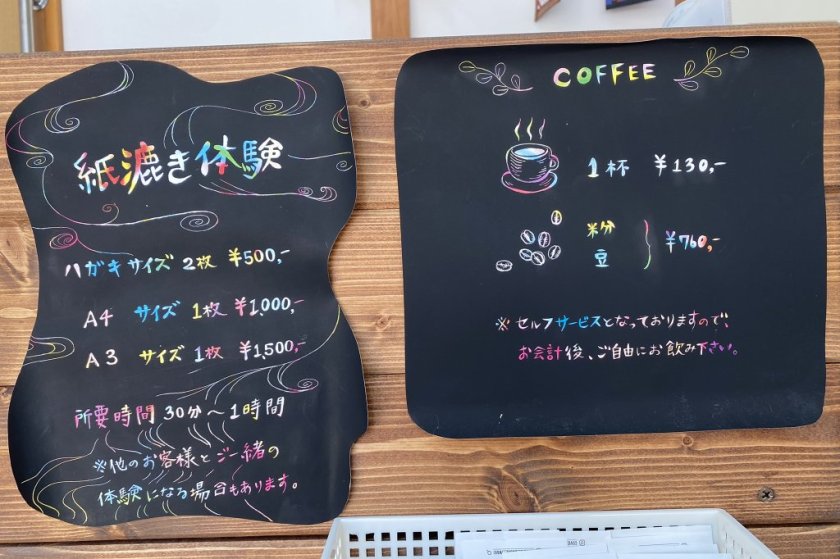 紙漉き体験
ハガキサイズ 2枚 ¥500,-
A4 サイズ 1枚 ¥1,000,-
A3 サイズ 1枚 ¥1,500,-
所要時間 30分～1時間
※他のお客様とご一緒の
体験になる場合もあります。
COFFEE
1杯 ¥130,-
粉
豆 } ¥760,-
※ セルフサービスとなっておりますので、
お会計後、ご自由にお飲み下さい。